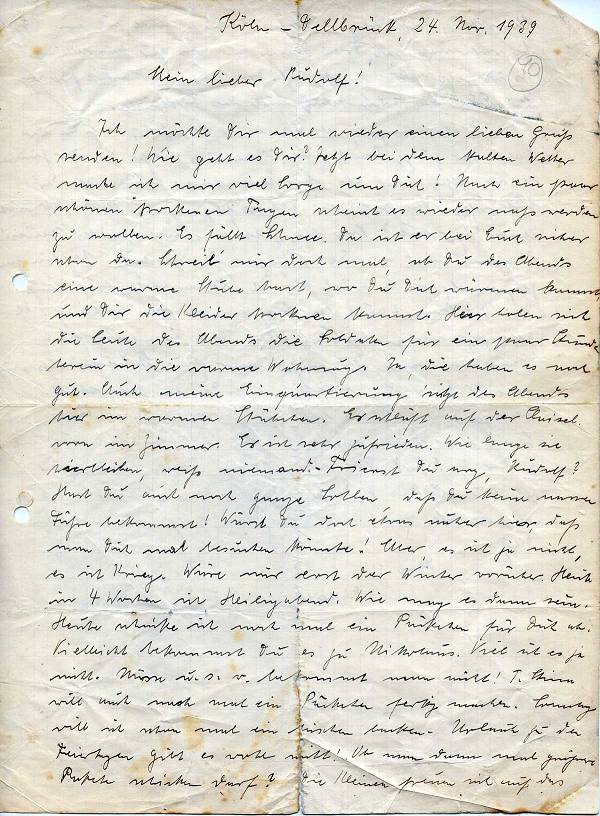 Köln - Dellbrück, 24. Nov. 1939
10
Mein lieber Rudolf!
Ich möchte Dir mal wieder einen lieben Gruß
senden! Wie geht es Dir? Jetzt bei dem kalten Wetter
mache ich mir viel Sorge um Dich! Nach ein paar
schönen trockenen Tagen scheint es wieder naß werden
zu wollen. Es fällt Schnee. Da ist er bei Euch sicher
schon da. Schreib mir doch mal, ob Du des Abends
eine warme Stube hast, wo Du Dich wärmen kannst,
und Dir die Kleider trocknen kannst. Hier holen sich
die Leute des Abends die Soldaten für ein paar Stunden
herein in die warme Wohnung. Ja, die haben es noch
gut. Auch meine Einquartierung sitzt des Abends
hier im warmen Stübchen. Er schläft auf der
vorn im Zimmer. Er ist sehr zufrieden. Wie lange sie
hierbleiben, weiß niemand. - Frierst Du arg, Rudolf?
Hast Du auch noch ganze Sohlen, daß Du keine nassen
Füße bekommst! Wärst Du doch etwas näher hier, daß
man Dich mal besuchen könnte! Aber, es ist ja nicht,
es ist Krieg. Wäre nur erst der Winter vorüber. Heute
in 4 Wochen ist Heiligabend. Wie mag es dann sein.
Heute schicke ich noch mal ein Päckchen für Dich ab.
Vielleicht bekommst Du es zu Nikolaus. Viel ist es ja
nicht. Nüsse u. s. w. bekommt man nicht! T.
will auch noch mal ein Päckchen fertig machen. Sonntag
will ich schon mal ein bischen backen. - Urlaub zu den
Feiertagen gibt es wohl nicht! Ob man dann mal größere
Pakete schicken darf? Die Kleinen freuen sich auf das